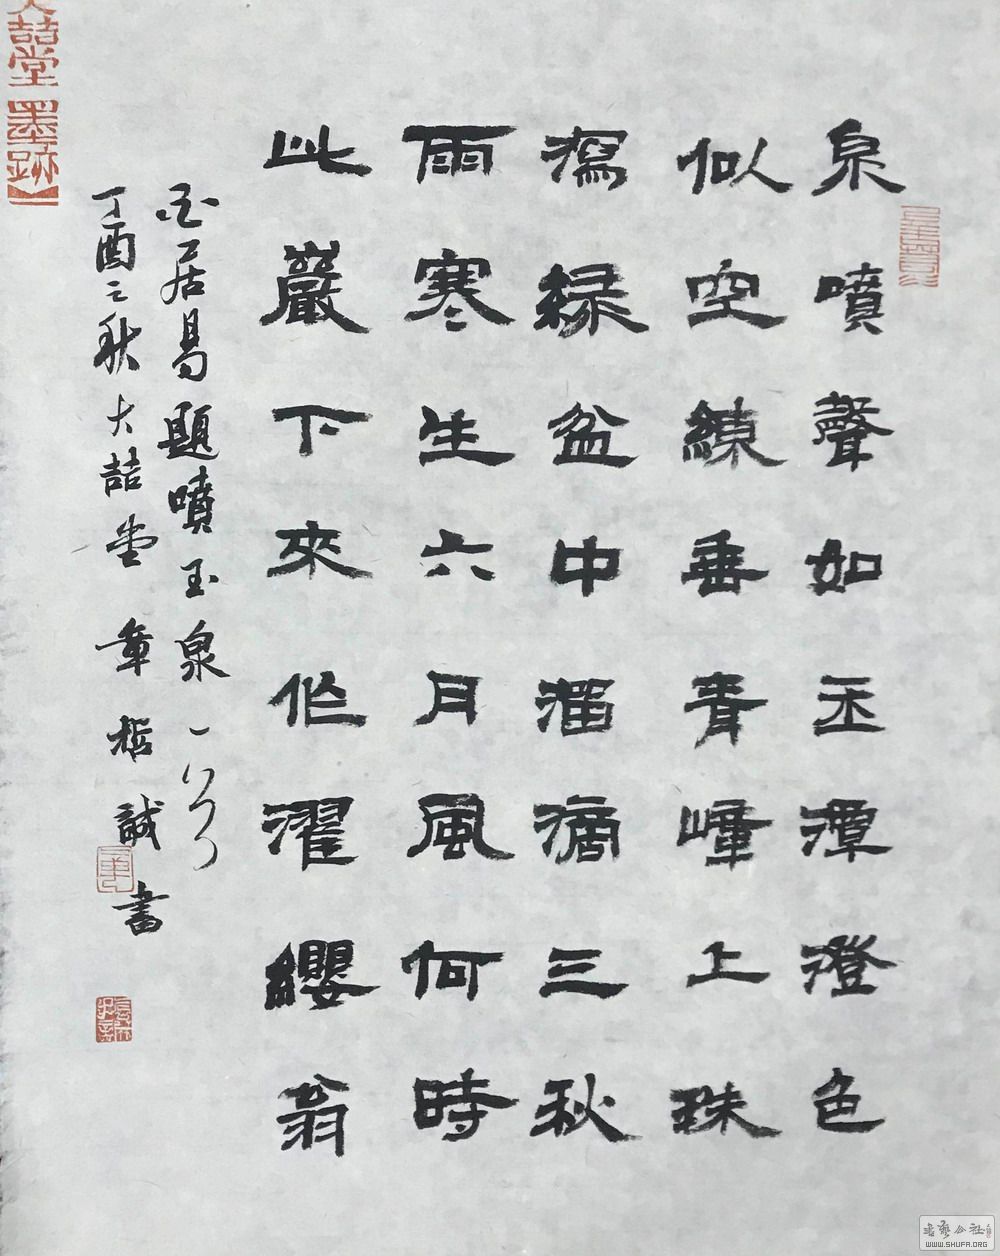 泉噴聲如玉潭澄色
似空練垂青嶂上珠
瀉綠盆中溜滴三秋
雨寒生六月風何時
此巖下來作濯纓翁
白居易題噴玉泉一首
丁酉之秋大喆堂章哲誠書
大喆堂【墨跡】
書藝公社
WWW.SHUFA.ORG